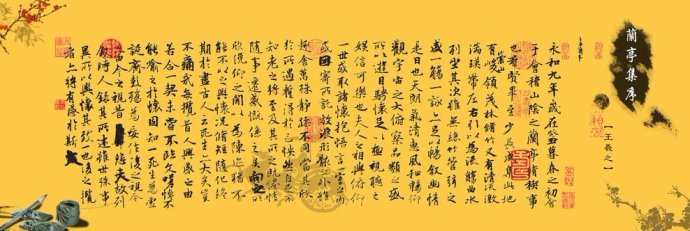 蘭亭集序
【王羲之】
永和九年歲在癸丑暮春之初會
于會稽山陰之蘭亭脩稧事
也群賢畢至少長咸集此地
有峻領茂林脩竹又有清流激
湍暎帶左右引以為流觴曲水
列坐其次雖無絲竹管弦之
盛一觴一詠亦足以暢敘幽情
是日也天朗氣清惠風和暢仰
觀宇宙之大俯察品類之盛
所以遊目騁懷足以極視聽之
娛信可樂也夫人之相與俯仰
一世或取諸懷抱悟言一室之內
或因寄所託放浪形骸之外雖
趣舍萬殊靜躁不同當其欣
於所遇蹔得於己怏然自足不
知老之將至及其所之既惓情
隨事遷感慨係之矣向之所
欣俛仰之閒以為陳迹猶不
能不以之興懷況脩短隨化終
期於盡古人云死生亦大矣豈
不痛哉每攬昔人興感之由
若合一契未嘗不臨文嗟悼不
能喻之於懷固知一死生為虛
誕齊彭殤為妄作後之視今
由今之視昔夫故列
敘時人錄其所述雖世殊事
異所以興懷其致一也後之攬
者亦將有感於斯